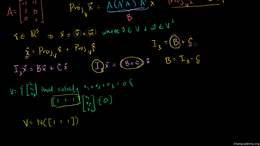 A = [1 1 -1 0 0 -1] Proj_V x⃗ = A(AᵀA)⁻¹Aᵀ x⃗
B
x⃗ ∈ ℝ³ ⇒ x⃗ = v⃗ + w⃗ where v⃗ ∈ V + w⃗ ∈ V^⊥
x⃗ = Proj_V x⃗ + Proj x⃗
I₃ = B + C
I₃ x⃗ = Bx⃗ + Cx⃗
I₃ x⃗ = (B + C) x⃗
B = I₃ - C
V = { [x₁ x₂ x₃] that satisfy x₁ + x₂ + x₃ = 0 }
[1 1 1] [x₁ x₂ x₃] = [0]
V = N([1 1 1])
khanacademy.org